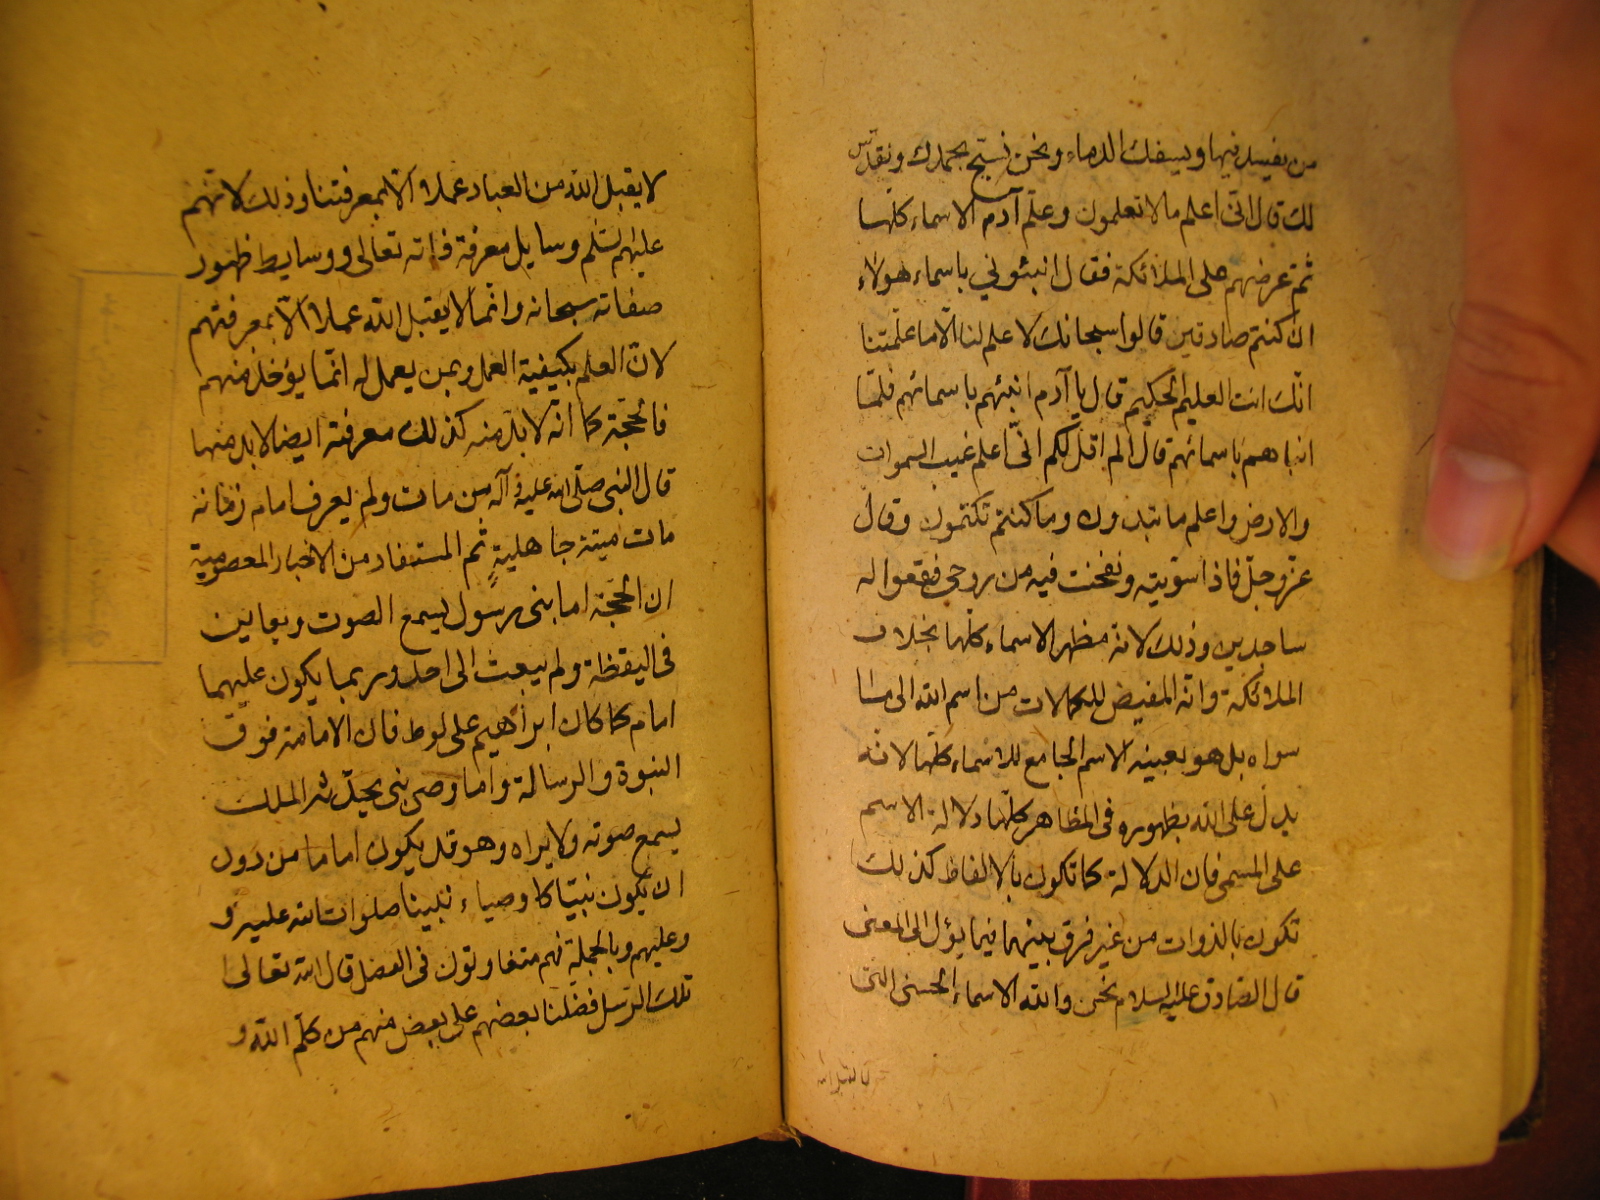 من يفسد فيها ويسفك الدماء ونحن نسبّح بحمدك ونقدّس
لك قال انّى اعلم مالا تعلمون وعلّم آدم الاسماء كلّها
ثمّ عرضهم على الملائكة فقال انبئوني باسماء هولاء
ان كنتم صادقين قالوا سبحانك لا علم لنا الّا ما علّمتنا
انّك انت العليم الحكيم قال يا آدم انبئهم باسمائهم فلمّا
انباهم باسمائهم قال الم اقل لكم انّى اعلم غيب السموات
والارض واعلم ما تبدون وما كنتم تكتمون وقال
عزّ وجلّ فاذا سوّيته ونفخت فيه من روحى فقعوا له
ساجدين وذلك لانه مظهر الاسماء كلّها بخلاف
الملائكة وانّه المفيض للكمالات من اسم الله الى ما
سواه بل هو بعينه الاسم الجامع للاسماء كلّها لانّه
يدلّ على الله بظهوره فى المظاهر كلّها دلالة الاسم
على المسمى فان الدلالة كما تكون بالالفاظ كذلك
تكون بالذوات من غير فرق بينهما فيما يؤل الى المعنى
قال الصّادق عليه السلام نحن والله الاسماء الحسنى التى
لا يقبل الله
لا يقبل الله من العباد عملا الّا بمعرفتنا وذلك لانّهم
عليهم السّلم وسايل معرفة ذاته تعالى ووسايط ظهور
صفاته سبحانه وانّما لا يقبل الله عملا الّا بمعرفتهم
لانّ العلم بكيفية العمل وبمن يعمل له انّما يؤخذ منهم
فالحجّة كما انّه لا بدّ منه كذلك معرفته ايضا لا بد منها
قال النبى صلّى الله عليه و آله من مات ولم يعرف امام زمانه
مات ميتة جاهليةٍ ثم المستفاد من الاخبار المعصومية
ان الحجّة اما بنى رسول يسمع الصوت ويعاين
فى اليقظة ولم يبعث الى احد وربما يكون عليهما
امام كما كان ابراهيم على لوط فان الامامة فوق
النبوة والرسالة واما وصى بنى يحدّثه الملك
يسمع صوته ولا يراه وهو قد يكون اماما من دون
ان يكون نبيّا كاوصياء نبينا صلوات الله عليه و
وعليهم وبالجملة فهم متفاوتون فى الفضل قال الله تعالى
تلك الرّسل فضّلنا بعضهم على بعض منهم من كلّم الله و